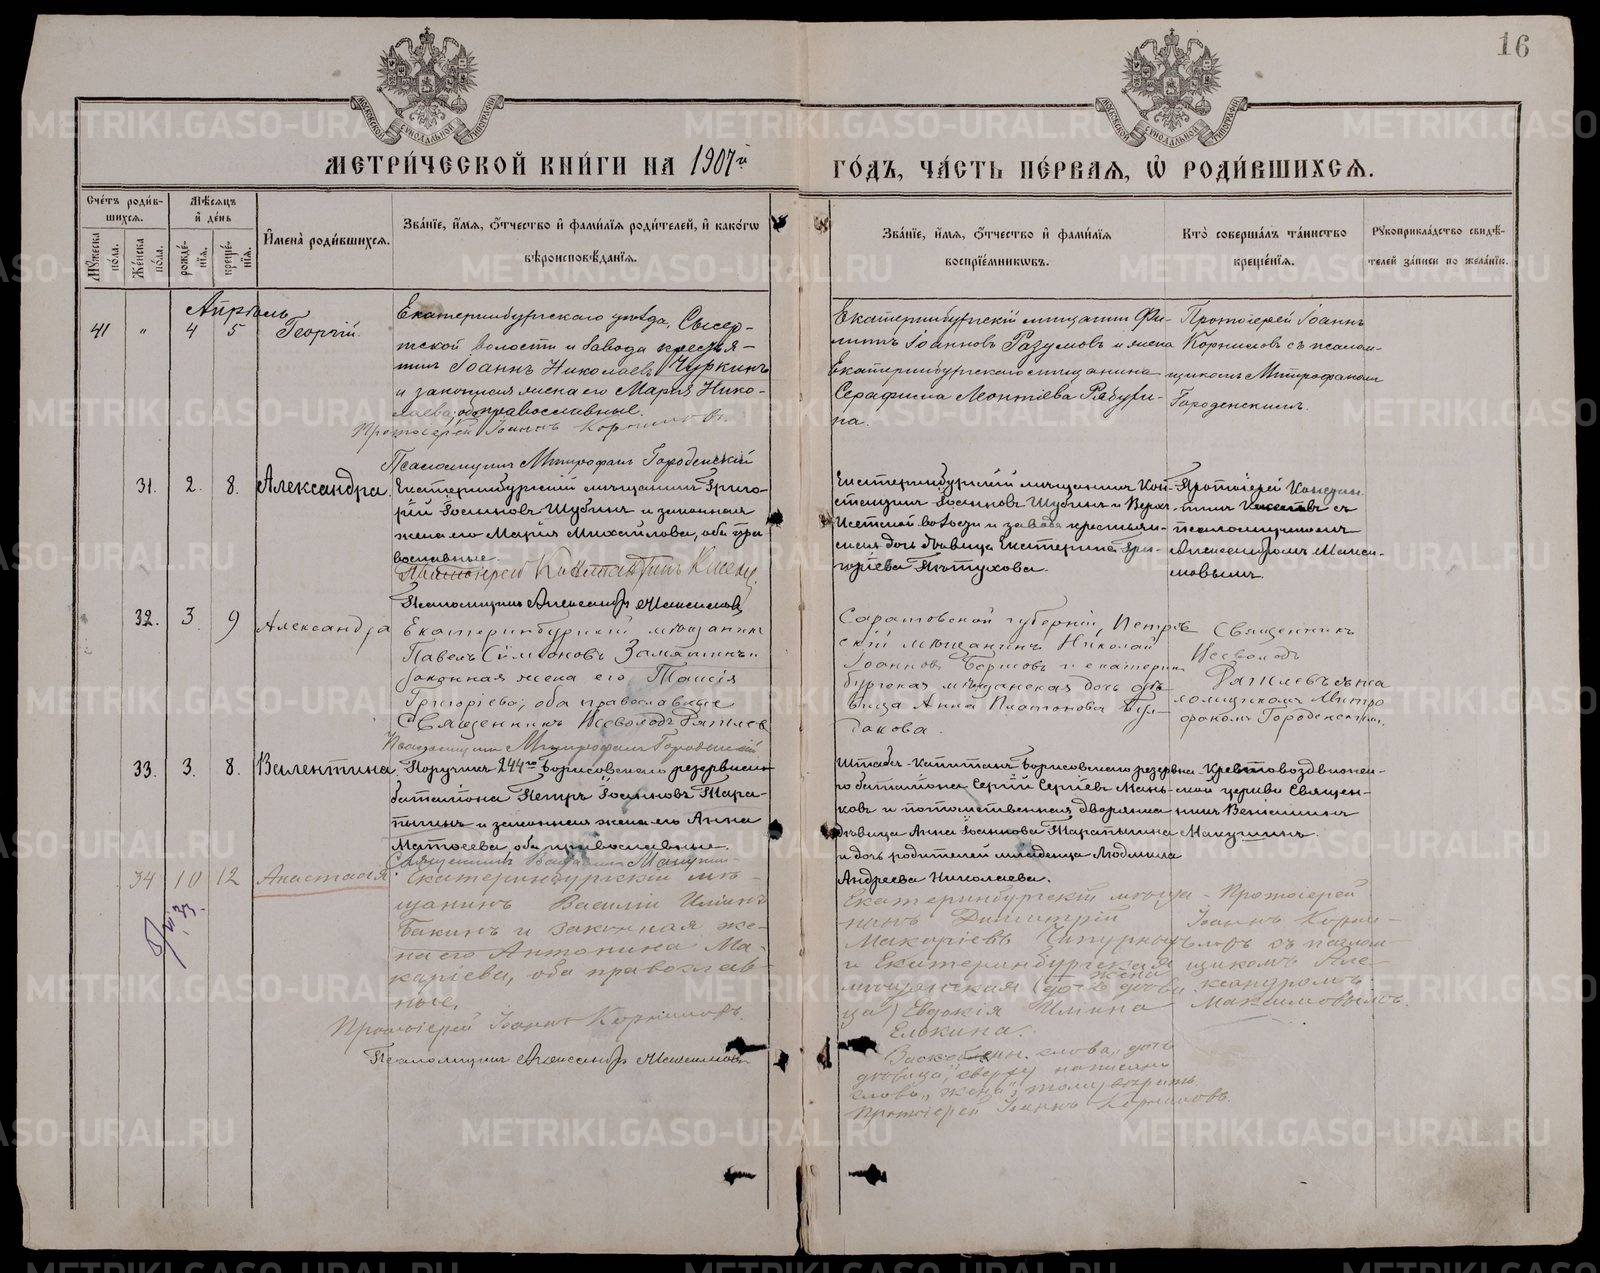 16
МЕТРИ́ЧЕСКОЙ КНИ́ГИ НА 1907й ГО́ДЪ, ЧА́СТЬ ПЕ́РВАЯ, Ѿ РОДИ́ВШИХСѦ.
Сче́тъ роди́в-
шихсѧ.
Мꙋ́жеска по́ла.
Же́нска по́ла.
Мѣ́сѧцъ
и҆ де́нь
рожде́-
нїѧ.
креще́-
нїѧ.
И҆мена̀ роди́вшихсѧ.
Зва́нїе, и҆́мѧ, ѻ҆́тчество и҆ фами́лїѧ роди́телей, и҆ како́гѡ
вѣроисповѣ́данїѧ.
Зва́нїе, и҆́мѧ, ѻ҆́тчество и҆ фами́лїѧ
воспрїе́мникѡвъ.
Кто̀ соверша́лъ та́инство
креще́нїѧ.
Рꙋкоприкла́дство свидѣ́-
телей за́писи по жела́нїю.
Апрѣль
41 " 4 5 Георгій.
Екатеринбургскаго уѣзда, Сысер-
тской волости и завода крестья-
нинъ Іоаннъ Николаевъ Чуркинъ
и законная жена его Марія Нико-
лаева, оба православные.
Протоіерей Іоаннъ Корниловъ
Псаломщикъ Митрофанъ Городенскій
Екатеринбургскій мѣщанинъ Фи-
липпъ Іоанновъ Разумовъ и жена
Екатеринбургскаго мѣщанина
Серафима Леонтіева Рябури-
на.
Протоіерей Іоаннъ
Корниловъ съ псалом-
щикомъ Митрофаномъ
Городенскимъ.
31. 2. 8. Александра.
Екатеринбургскій мѣщанинъ Григо-
рій Іоанновъ Шубинъ и законная
жена его Марія Михайлова, оба пра-
вославные.
Протоіерей Константинъ
Псаломщикъ Александръ Максимовъ
Екатеринбургскій мѣщанинъ Кон-
стантинъ Іоанновъ Шубинъ и Верхъ-
Исетской волости и завода крестьян-
ская дочь дѣвица Екатерина Гри-
горіева Пѣтухова.
Протоіерей Констан-
тинъ съ
псаломщикомъ
Александромъ Макси-
мовымъ.
32. 3. 9 Александра
Екатеринбургскій мѣщанинъ
Павелъ Симеоновъ Замятинъ и
законная жена его Таисія
Григоріева, оба православные
Священникъ Всеволодъ
Псаломщикъ Митрофанъ Городенскій
Саратовской губерніи, Петров
скій мѣщанинъ Николай
Іоанновъ Борисовъ и екатерин
бургская мѣщанская дочь дѣ-
вица Анна Платоновна Бул-
гакова.
Священникъ
Всеволодъ
съ пса
ломщикомъ Митро
фаномъ Городенскимъ.
33. 3. 8. Валентина.
Поручикъ 244го Борисовскаго резервнаго
баталіона Петръ Іоанновъ Тара-
тынинъ и законная жена его Анна
Матѳеева, оба православные.
Священникъ Веніаминъ
Штабсъ-Капитанъ Борисовскаго резервна-
го баталіона Сергій Сергіевъ Мань-
ковъ и потомственная дворянка
дѣвица Анна Іоаннова Таратынина
и дочь родителей младенца Людмила
Андреева Николаева.
Крестовоздвижен-
ской церкви Священ-
никъ Веніаминъ
34 10 12 Анастасія
Екатеринбургскій мѣ-
щанинъ Василій Иліинъ
Бакинъ и законная же-
на его Антонина Ма-
каріева, оба православ-
ные.
Протоіерей Іоаннъ Корниловъ.
Псаломщикъ Александръ Максимовъ.
Екатеринбургскій мѣща-
нинъ Димитрій
Макаріевъ Чипурныхъ
и Екатеринбургская
мѣщанская (дочь дѣви жена
ца) Евдокія Илiина
Елькина.
Протоіерей
Іоаннъ Корни-
ловъ съ псалом-
щикомъ Але-
ксандромъ
Максимовымъ.
слова, дочь
дѣвица", сверху написано
слово "жена", тому вѣрить.
Протоіерей Іоаннъ Корниловъ.
METRIKI.GASO-URAL.RU